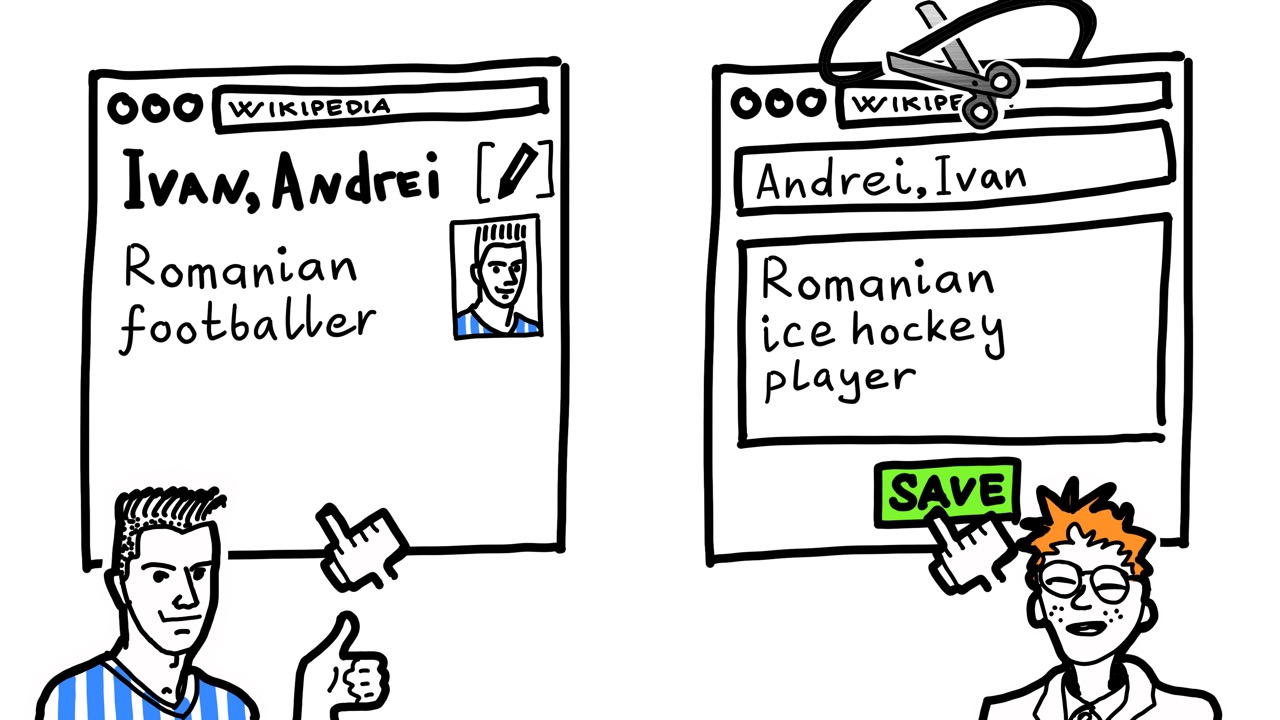 WIKIPEDIA
Ivan, Andrei
Romanian
footballer
WIKIPE
Andrei, Ivan
Romanian
ice hockey
player
SAVE